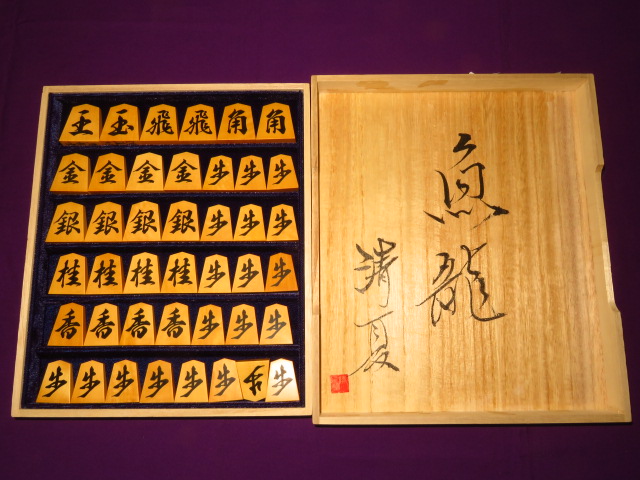 王玉飛飛角角
金金金金歩歩歩
銀銀銀銀歩歩歩
桂桂桂桂歩歩歩
香香香香歩歩歩
歩歩歩歩歩歩歩歩
魚龍
清夏